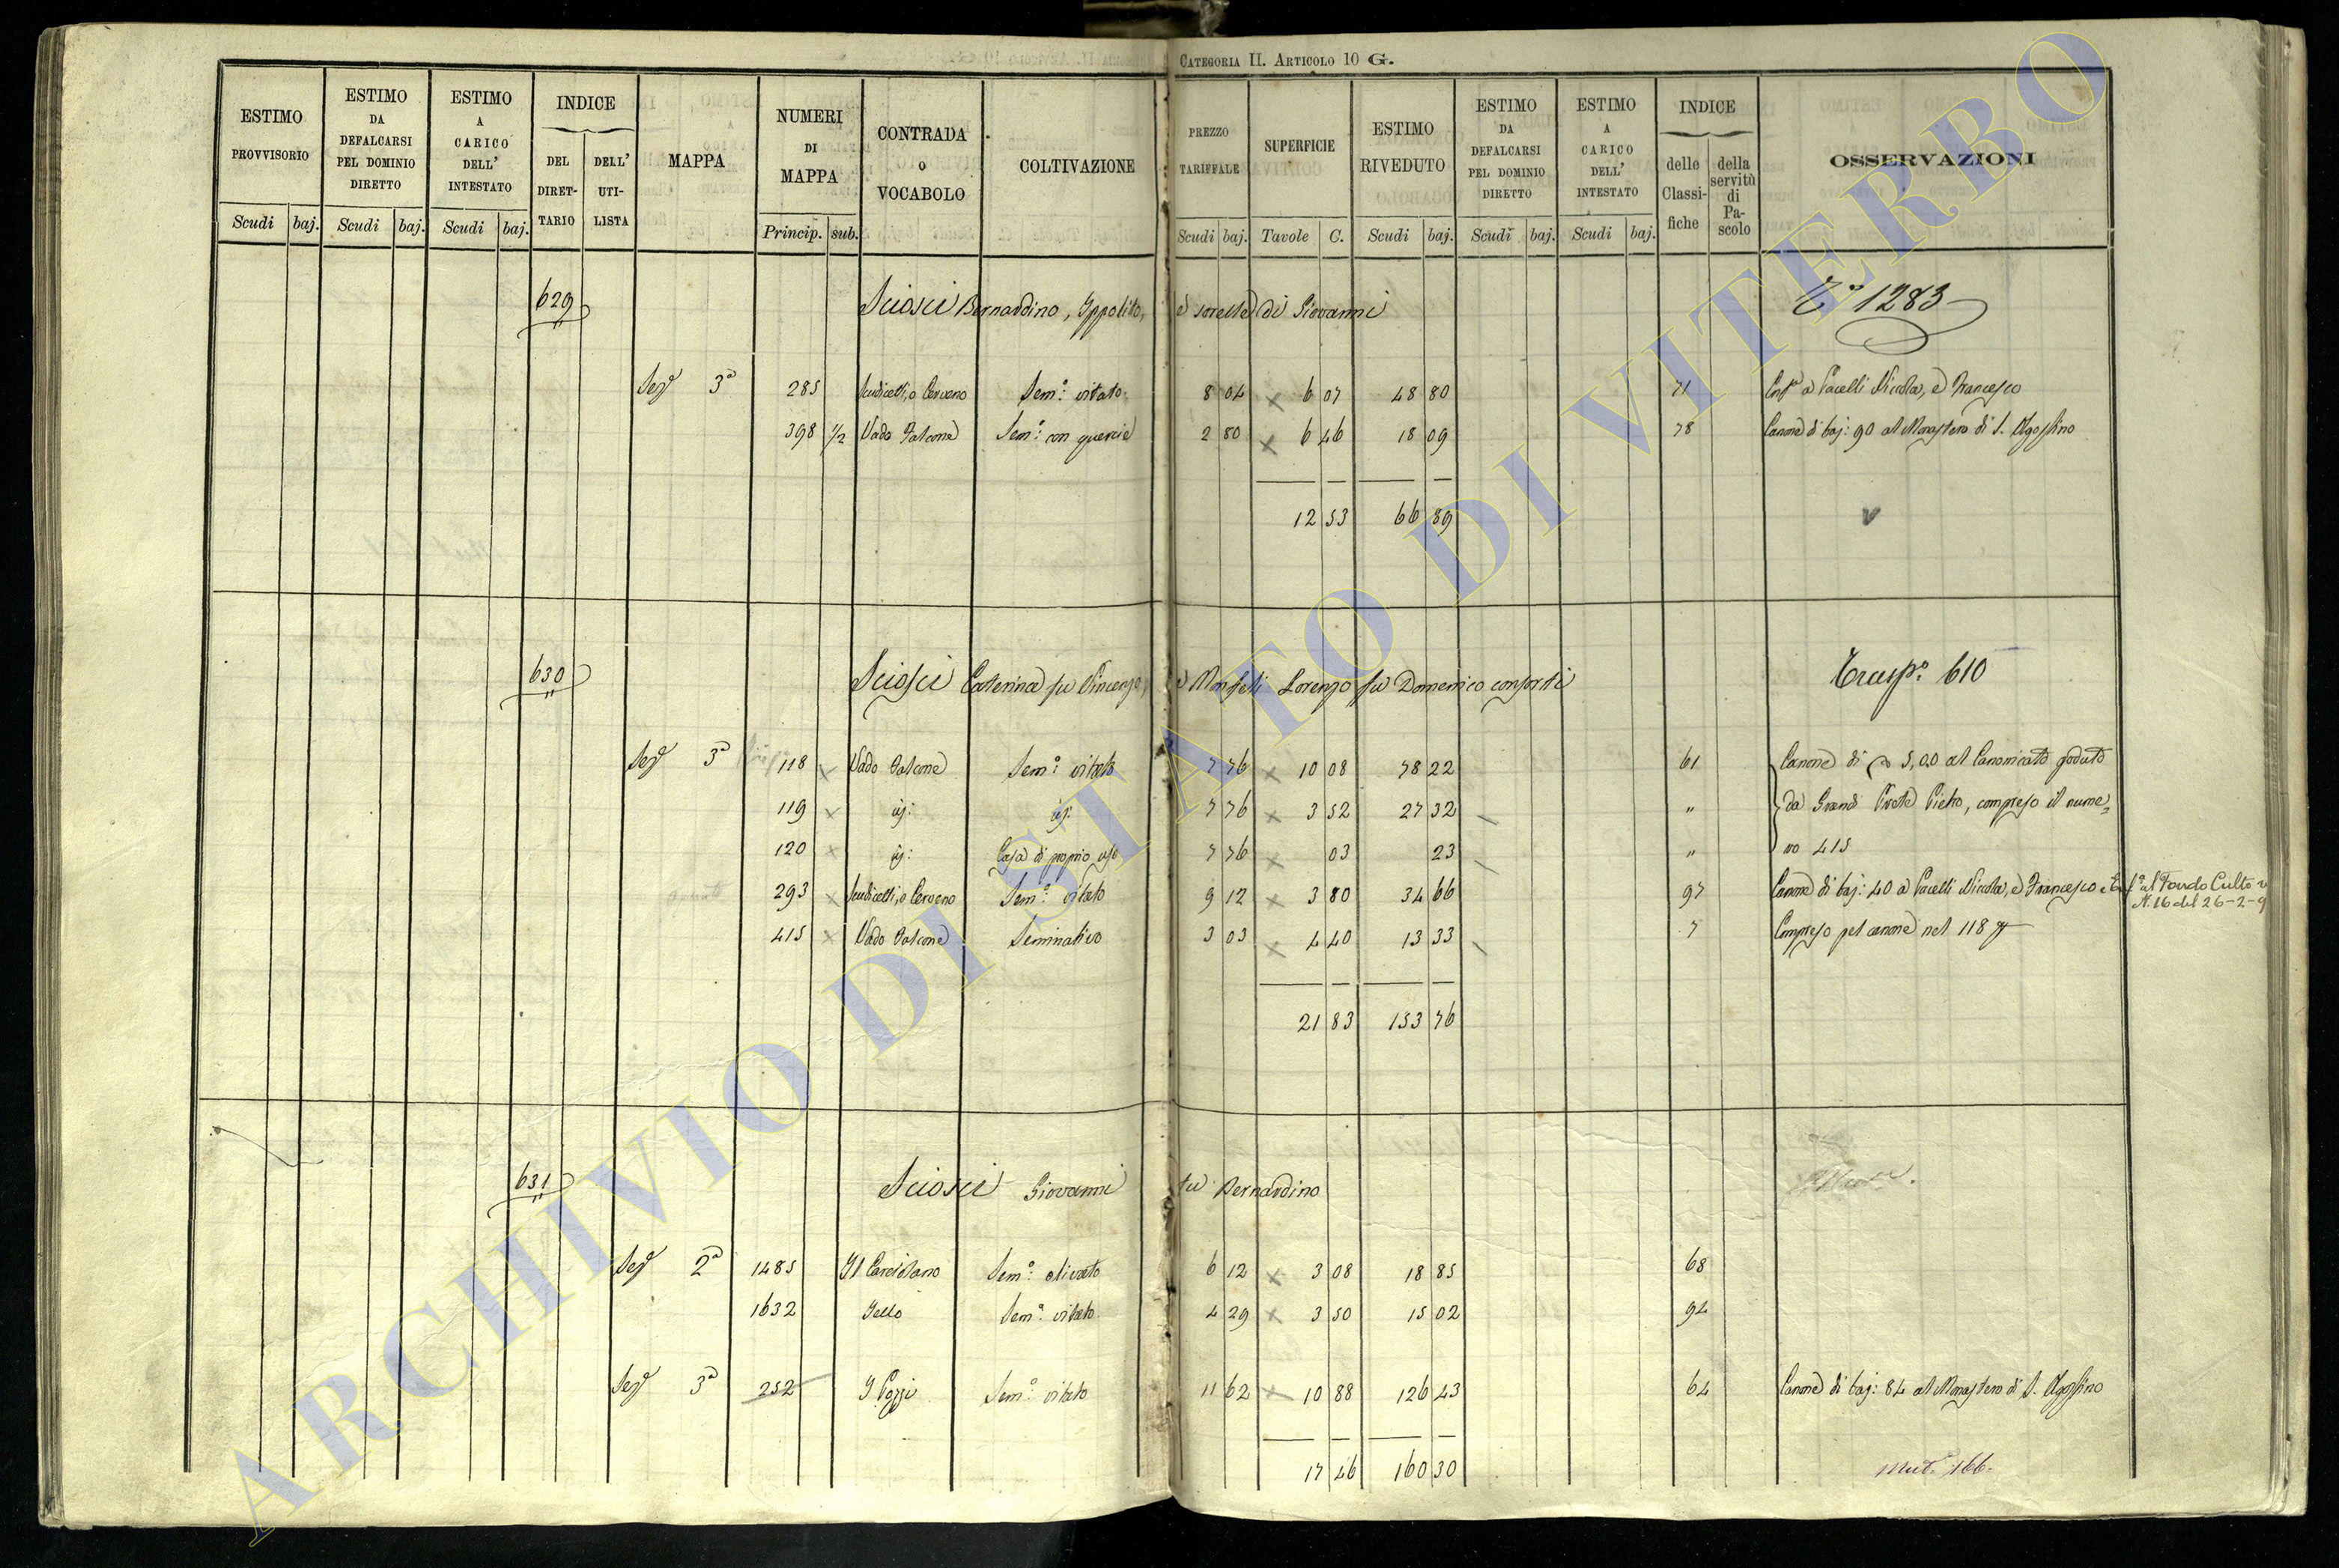 CATEGORIA II. ARTICOLO 10 G.
ESTIMO PROVVISORIO Scudi baj.
ESTIMO DA DEFALCARSI PEL DOMINIO DIRETTO Scudi baj.
ESTIMO A CARICO DELL' INTESTATO Scudi baj.
INDICE DEL DIRETTARIO DELL' UTILISTA
MAPPA
NUMERI DI MAPPA Princip. sub.
CONTRADA O VOCABOLO
COLTIVAZIONE
PREZZO TARIFFALE Scudi baj.
SUPERFICIE Tavole C.
ESTIMO RIVEDUTO Scudi baj.
ESTIMO DA DEFALCARSI PEL DOMINIO DIRETTO Scudi baj.
ESTIMO A CARICO DELL' INTESTATO Scudi baj.
INDICE delle Classifiche della servitù di Pascolo
OSSERVAZIONI
629 Sciosci Bernardino, Ippolito, e sorelle di Giovanni 1283
Sez. 3ª 285 Scudicelli, o Cerveno Sem.º vitato 8 04 6 07 48 80 71 a Pacelli Nicola, e Francesco
398 1/2 Vado Falcone Sem.º con quercie 2 80 6 46 18 09 78 Canone di baj: 90 al Monastero di S. Agostino
12 53 66 89
630 Sciosci Caterina fu Vincenzo, e Lorenzo fu Domenico consorti Trasp.º 610
Sez. 3ª 118 Vado Falcone Sem.º vitato 7 76 10 08 78 22 61 Canone di 5,00 al Canonicato goduto
119 id: id: 7 76 3 52 27 32 " da Grandi Prete Pietro, compreso il nume=
120 id: Casa di proprio uso 7 76 03 23 " ro 415
293 Scudicelli, o Cerveno Sem.º vitato 9 12 3 80 34 66 97 Canone di baj: 40 a Pacelli Nicola, e Francesco al Fondo Culto
N. 16 del 26-2-9
415 Vado Falcone Seminativo 3 03 4 40 13 33 7 Compreso pel canone nel 118
21 83 153 76
631 Sciosci Giovanni fu Bernardino
Sez. 2ª 1485 Il Sem.º olivato 6 12 3 08 18 85 68
1632 Sem.º vitato 4 29 3 50 15 02 94
Sez. 3ª 252 I Pozzi Sem.º vitato 11 62 10 88 126 43 64 Canone di baj: 84 al Monastero di S. Agostino
17 46 160 30
Mut. 166.
ARCHIVIO DI STATO DI VITERBO